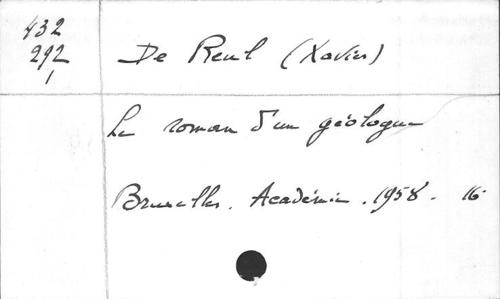 432
292
1
De Reul (Xavier)
Le roman d'un géologue
Bruxelles. Académie. 1958. 16